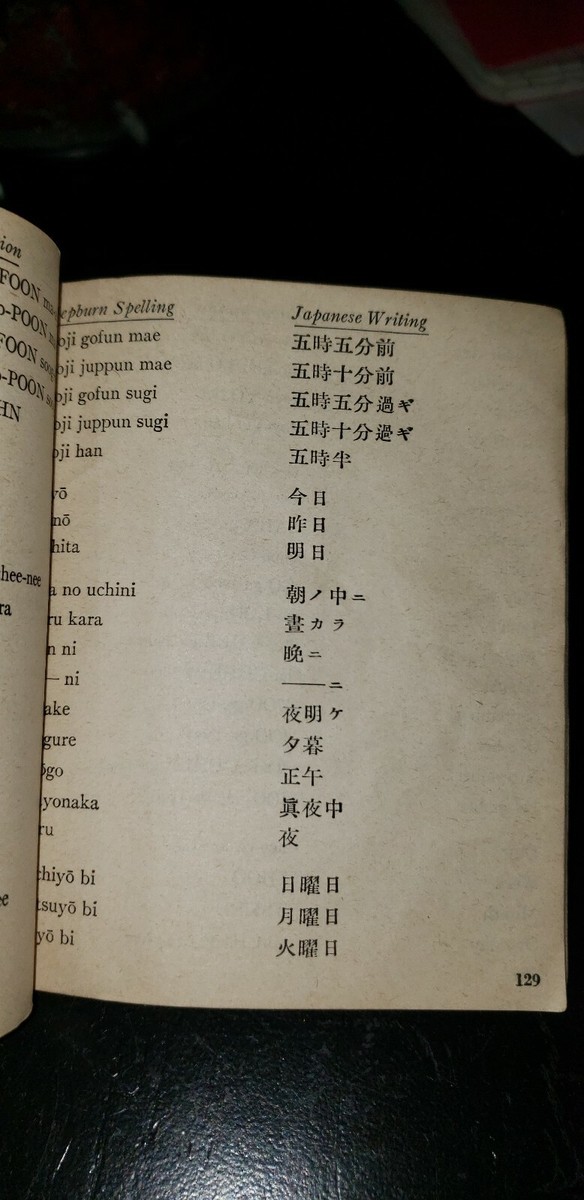 ion
FOON
O-POON
FOON
O-POON
HN
hee-nee
ra
ee
epburn Spelling Japanese Writing
oji gofun mae 五時五分前
oji juppun mae 五時十分前
oji gofun sugi 五時五分過ギ
oji juppun sugi 五時十分過ギ
oji han 五時半
yō 今日
nō 昨日
hita 明日
a no uchini 朝ノ中ニ
ru kara 晝カラ
n ni 晩ニ
— ni ——ニ
ake 夜明ケ
gure 夕暮
ōgo 正午
yonaka 眞夜中
ru 夜
chiyō bi 日曜日
tsuyō bi 月曜日
yō bi 火曜日
129